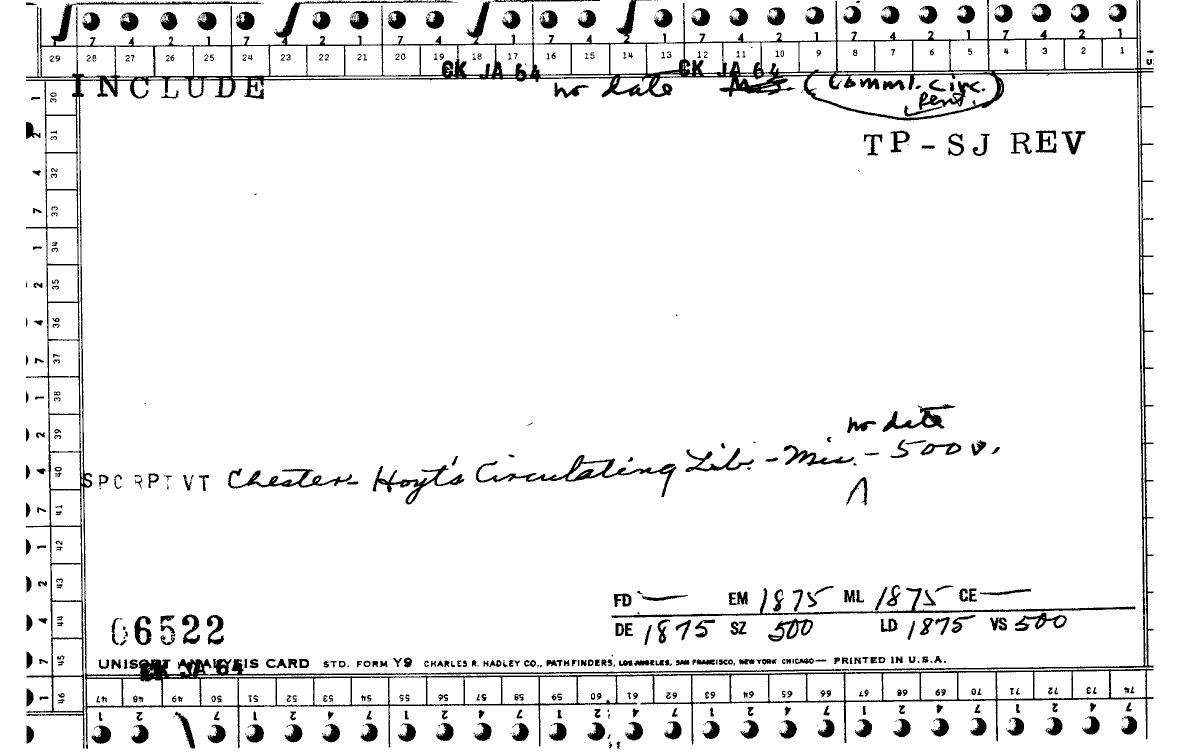 7 4 2 1 7 4 2 1 7 4 2 1 7 4 2 1 7 4 2 1 7 4 2 1 7 4 2 1
29 28 27 26 25 24 23 22 21 20 19 18 17 16 15 14 13 12 11 10 9 8 7 6 5 4 3 2 1
CK JA 64 CK JA 64
INCLUDE no date (Comml. circ.
Pend.)
TP-SJ REV
1 30
2 31
4 32
7 33
1 34
2 35
4 36
7 37
1 38
2 39
4 40
7 41
1 42
2 43
4 44
7 45
1 46
no date
SPC RPT VT Chester - Hoyt's Circulating Lib. - Mis. - 500 v.
FD — EM 1875 ML 1875 CE —
DE 1875 SZ 500 LD 1875 VS 500
06522
UNISORT ANALYSIS CARD STD. FORM Y9 CHARLES R. HADLEY CO., PATHFINDERS, LOS ANGELES, SAN FRANCISCO, NEW YORK CHICAGO — PRINTED IN U.S.A.
CK JA 64
47 48 49 50 51 52 53 54 55 56 57 58 59 60 61 62 63 64 65 66 67 68 69 70 71 72 73 74
1 2 7 1 2 4 7 1 2 4 7 1 2 4 7 1 2 4 7 1 2 4 7 1 2 4 7